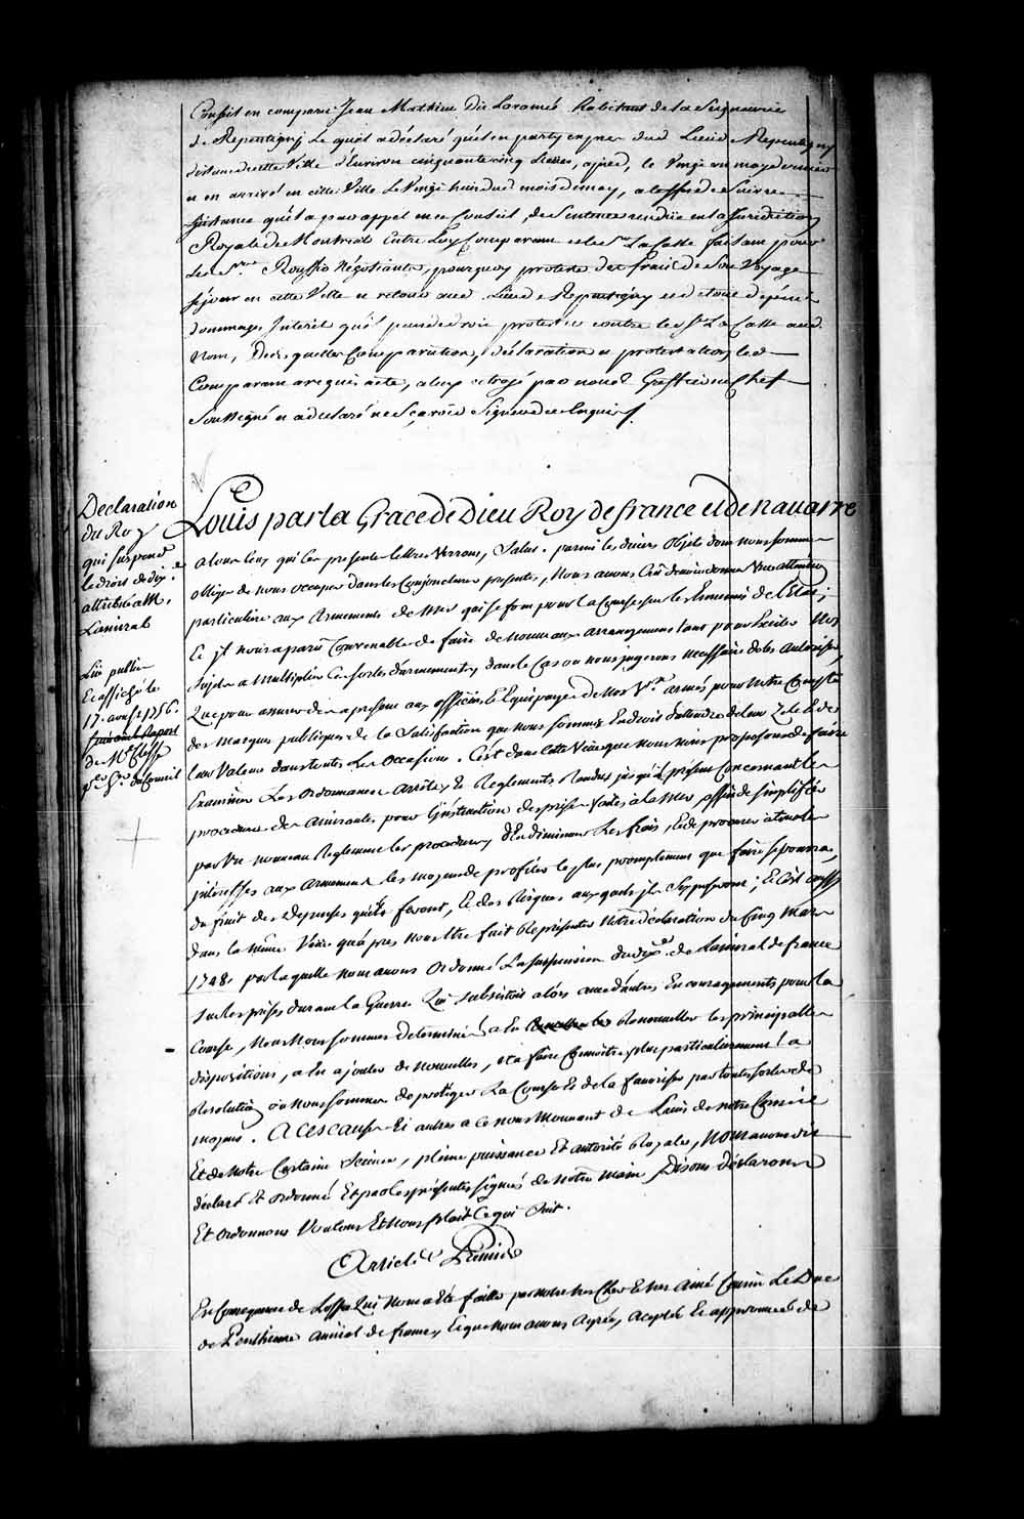 Ce fait en comparu Jean Mathieu dit Laramé habitant de la Seigneurie
de Repentigny Lequel a déclaré quil en party expres dud. Lieu de Repentigny
distant de cette Ville d'Environ cinquante cinq Lieues, aprés, le vingt un may dernier
et en arrivé en cette Ville Le Vingt huit dud mois de may, a l'effet de Suivre
Instance quil a par appel en ce Conseil, de Sentence rendüe en la Jurisdiction
Royale de Montreal Entre Luy Comparant et le Sr La Casse faisant pour
Les Srs Négotiants, pourquoy proteste des fraix de Son Voyage
Séjour en cette Ville et retour aud. Lieu de Repentigny et de tous dépens
dommages Interêt quil peut et doit protester contre led. Sr La Casse aud.
Nom, Desquelles Comparution, déclaration et protestation led.
Comparant a requis acte, a luy octroyé par nous Greffier en Chef
Soussigné et a declaré ne Sçavoir Signer de ce Enquis ./.
Declaration
du Roy
qui suspend
le droit de dixe
attribué a M.
L'amiral
Lüe publiée
Et affichée le
17. aoust 1756.
suivant Raport
de
du Conseil
Louis par la Grace de Dieu Roy de france et de navarre
a tous ceux qui ces presentes lettres Verront, Salut. parmi les divers Objets dont nous sommes
obligés de nous occuper dans les Conjonctures presentes, Nous avons Crû devoir donner Une attention
particuliere aux Armements de Mer qui se font pour la Course sur les Ennemis de l'Etat;
Il nous a paru Convenable de faire de Nouveaux arrangemens tant pour Exciter Nos
Sujets a Multiplier Ces sortes d'armements, dans le Cas ou nous jugerons necessaire de les autoriser,
Que pour assurer des a present aux officiers & Equipages de Nos Vx. armés pour Notre Compte
des Marques publiques de la Satisfaction que nous sommes En droit d'attendre de leur Zele & de
leur Valeur dans toutes Les Occasions. C'est dans cette Veüe que Nous Nous proposons de faire
Examiner Les Ordonnances arrêts & Reglements Rendus jusqu'à present Concernant les
procedures des amirautés pour L'instruction des prises faites à la Mer, affin de simplifier
par Un nouveau Reglement les procedures, d'En diminuer Les frais, & de procurer a tous les
interessés aux armements les moyens de profiter le plus promptement que faire se pourra,
du fruit des depenses qu'ils feront, & des Risques auxquels ils S'exposeront; & C'est aussy
dans la même Veüe qu'après Nous être fait Representer Notre déclaration du Cinq Mars
1748. par laquelle nous avons Ordonné La suspension du dixe. de Lamiral de france
sur les prises durant la Guerre Qui subsistoit alors avec d'autres Encouragements pour la
Course, Nous Nous sommes determiné a En Renouveller les principalles
dispositions, a les ajouter de nouvelles, et a faire Connoitre plus particulierement la
Resolution ou Nous sommes de proteger La Course & de la favoriser par toutes sortes de
moyens. A Ces Causes Et autres a ce nous Mouvant de L'avis de notre Conseil
Et de Notre Certaine Science, pleine puissance Et autorité Royale, Nous avons dit
déclaré & ordonné Et par ces presentes signées de Notre Main Disons déclarons
Et ordonnons Voulons Et Nous plait Ce qui Suit.
Article Premier
En Consequence de L'offre Qui Nous a Eté faitte par notre tres Cher & tres Aimé Cousin Le Duc
de Penthievre amiral de france, Et que nous avons Agrée, Accepté & approuvée &c de